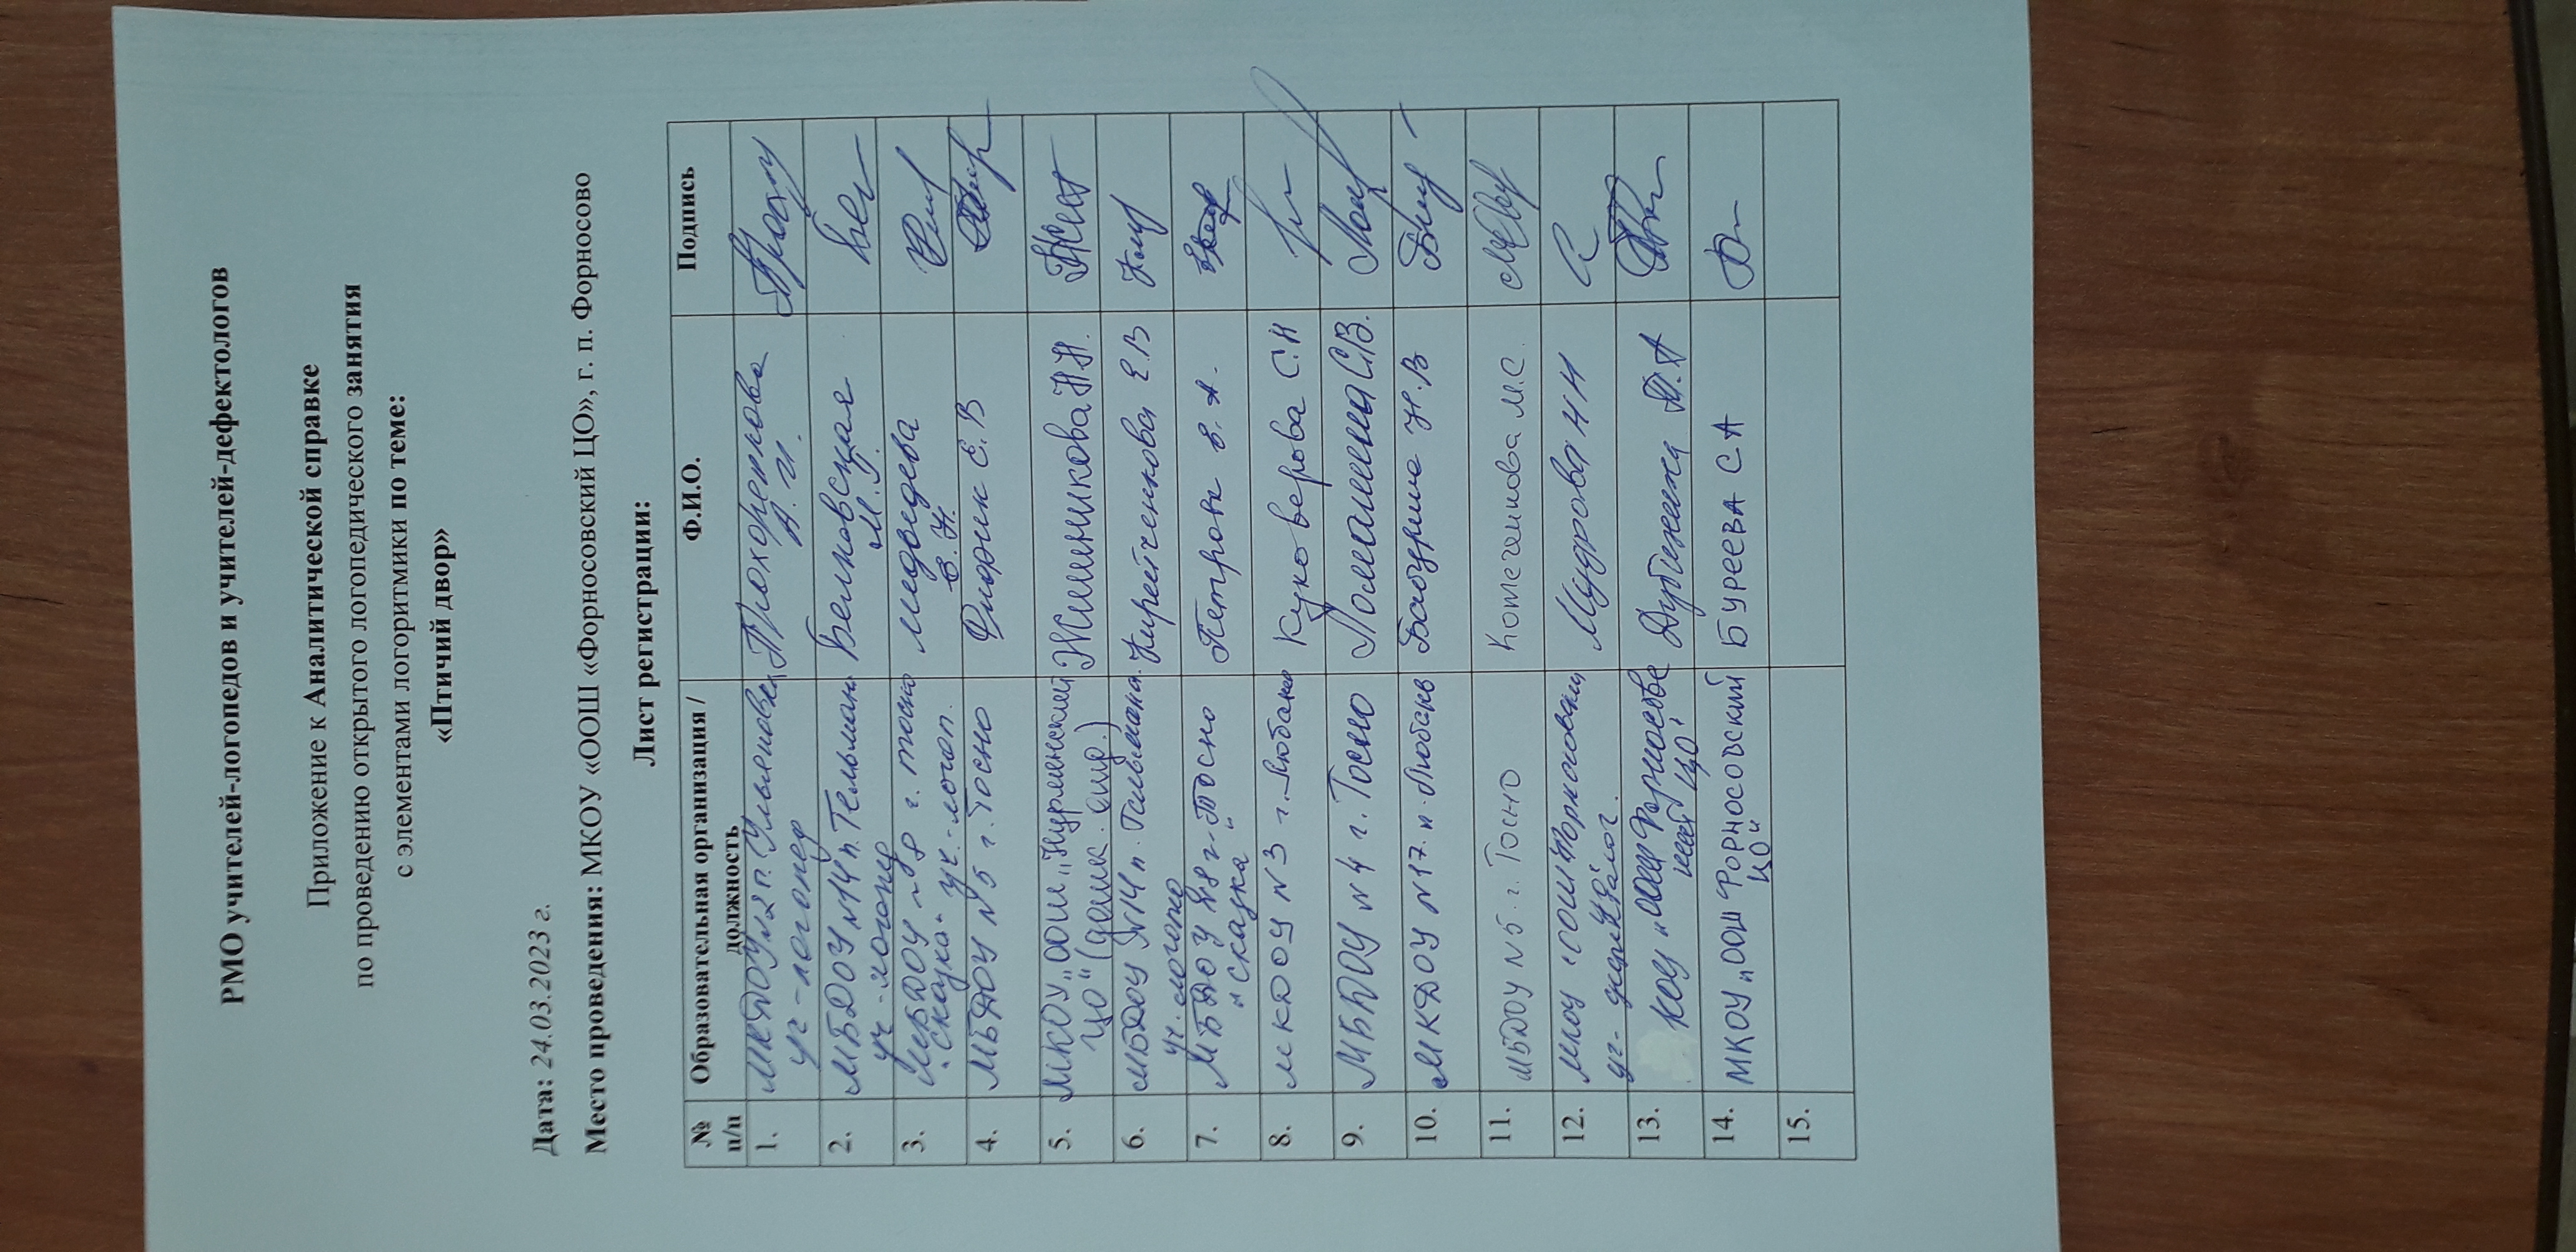 РМО учителей-логопедов и учителей-дефектологов
Приложение к Аналитической справке
по проведению открытого логопедического занятия
с элементами логоритмики по теме:
«Птичий двор»
Дата: 24.03.2023 г.
Место проведения: МКОУ «ООШ «Форносовский ЦО», г. п. Форносово
Лист регистрации:
№ п/п Образовательная организация / должность Ф.И.О. Подпись
1. МКДОУ №2 п. Ульяновка Прохоренкова
уч-логопед А. И.
2. МБДОУ №14 п. Тельмана Белковская
уч-логопед М.У.
3. МБДОУ №8 г. Тосно Медведева
"Сказка" уч.-логоп. Е. Н.
4. МБДОУ №5 г. Тосно Е. В
5. МКОУ „ООШ „Нурменский Жишникова Н.Н.
ЦО" (дошк. отд.)
6. МБДОУ №14 п. Тельмана Кирейченкова Е.В
уч. логопед
7. МБДОУ №8 г. Тосно Петрова Е. А.
"Сказка"
8. МКДОУ №3 г. Любань Куковерова С.Н
9. МБДОУ №4 г. Тосно Ломашина С.В.
10. МКДОУ №17 п. Любань Н.В
11. МБДОУ №5 г. Тосно Котегашова М.С.
12. МКОУ Мудрова Н Н
уч-
13. „ООШ ЦО"
14. МКОУ „ООШ Форносовский Буреева С А
ЦО"
15.